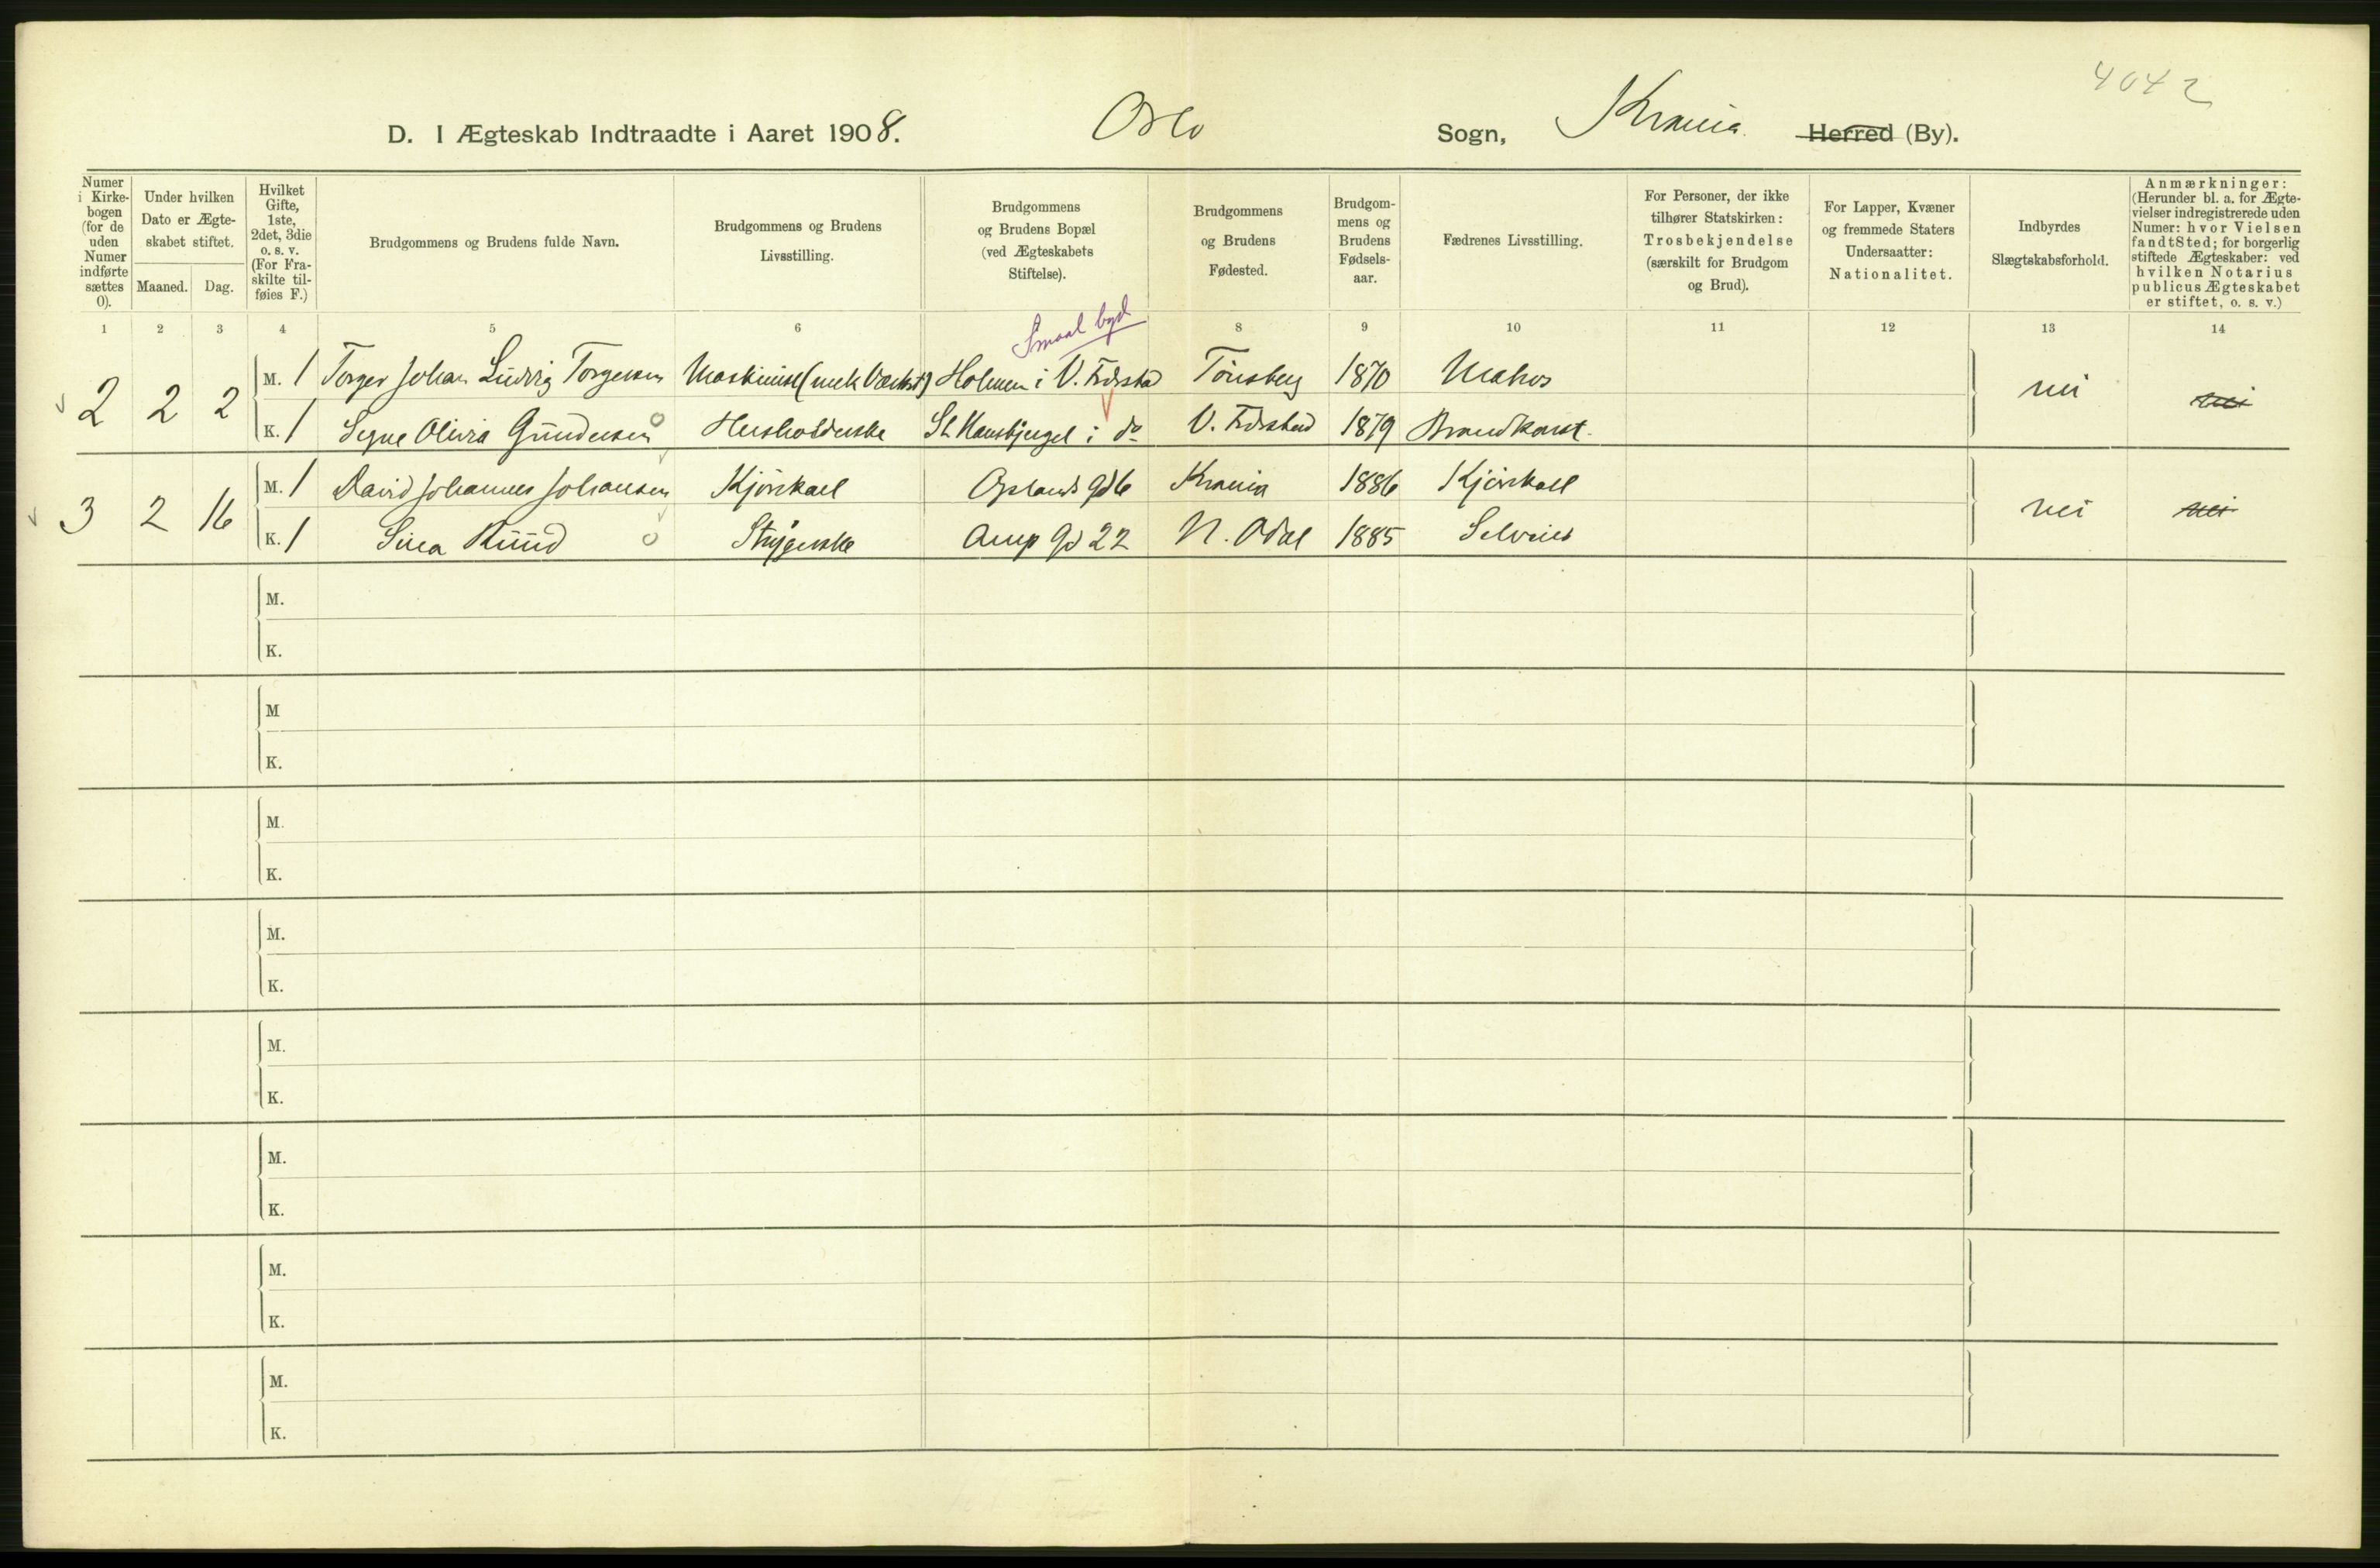 4042
D. I Ægteskab Indtraadte i Aaret 1908. Oslo Sogn, Krania Herred (By).
Numer i Kirkebogen (for de uden Numer indførte sættes 0).
Under hvilken Dato er Ægteskabet stiftet.
Maaned. Dag.
Hvilket Gifte, 1ste, 2det, 3die o. s. v. (For Fraskilte tilføies F.)
Brudgommens og Brudens fulde Navn.
Brudgommens og Brudens Livsstilling.
Brudgommens og Brudens Bopæl (ved Ægteskabets Stiftelse).
Brudgommens og Brudens Fødested.
Brudgommens og Brudens Fødselsaar.
Fædrenes Livsstilling.
For Personer, der ikke tilhører Statskirken: Trosbekjendelse (særskilt for Brudgom og Brud).
For Lapper, Kvæner og fremmede Staters Undersaatter: Nationalitet.
Indbyrdes Slægtskabsforhold.
Anmærkninger: (Herunder bl. a. for Ægtevielser indregistrerede uden Numer: hvor Vielsen fandt Sted; for borgerlig stiftede Ægteskaber: ved hvilken Notarius publicus Ægteskabet er stiftet, o. s. v.)
1 2 3 4 5 6 8 9 10 11 12 13 14
Smaal byd
2 2 2 M. 1 Torger Johan Ludvig Torgersen Maskinist (mek Værkst) Holmen i V. Fredrstad Tönsberg 1870 Matros nei nei
K. 1 Signe Olivia Gundersen Husholderske St Hansbjerget i do V. Fredrstad 1879 Brandkonst.
3 2 16 M. 1 David Johannes Johansen Kjörekarl Oplands Gd 6 Krania 1886 Kjörekarl nei nei
K. 1 Sina Ruud Strygerske Amp Gd 22 N. Odal 1885 Selveier
M.
K.
M
K.
M.
K.
M.
K.
M.
K.
M.
K.
M.
K.
M.
K.